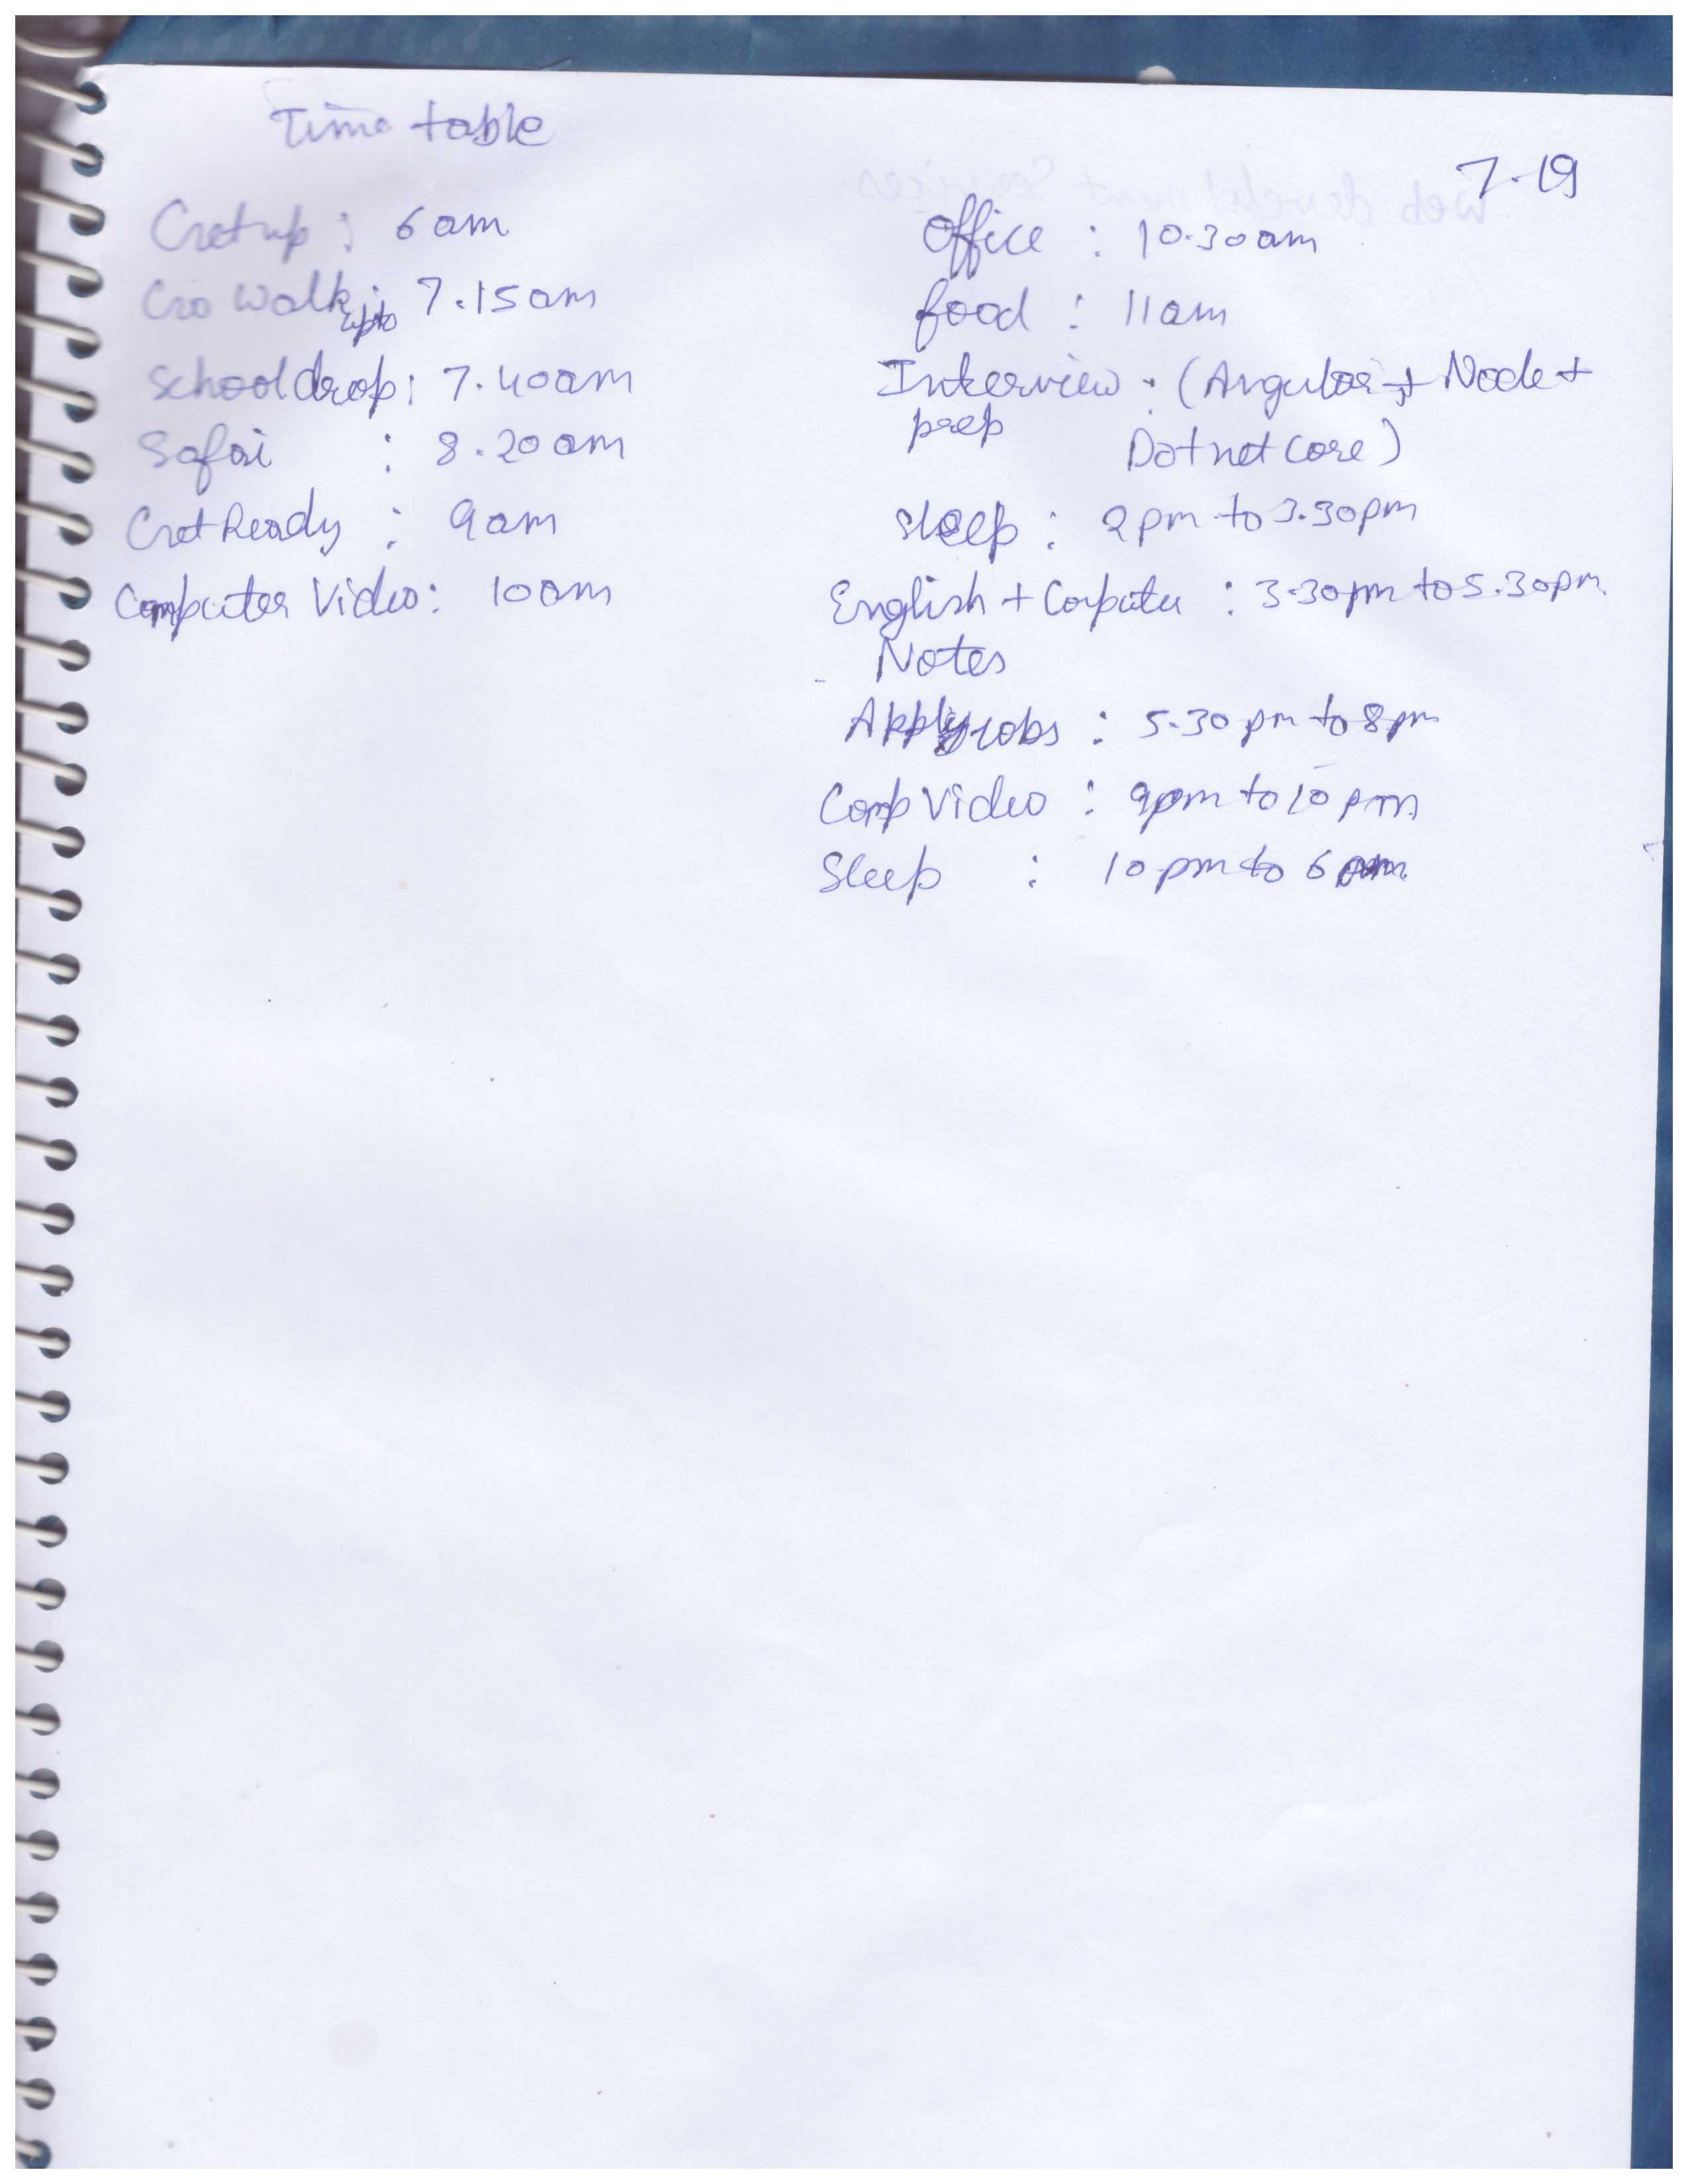 Time table
7.19
Get up : 6 am
Go Walk upto : 7.15am
School drop : 7.40am
Safai : 8.20am
Get Ready : 9am
Computer Video : 10am
Office : 10.30am
food : 11am
Interview : (Angular + Node +
prep Dotnet Core)
Sleep : 2pm to 3.30pm
English + Coputer : 3.30pm to 5.30pm
Notes
Apply Jobs : 5.30 pm to 8pm
Comp Video : 9pm to 10 pm
Sleep : 10 pm to 6 am